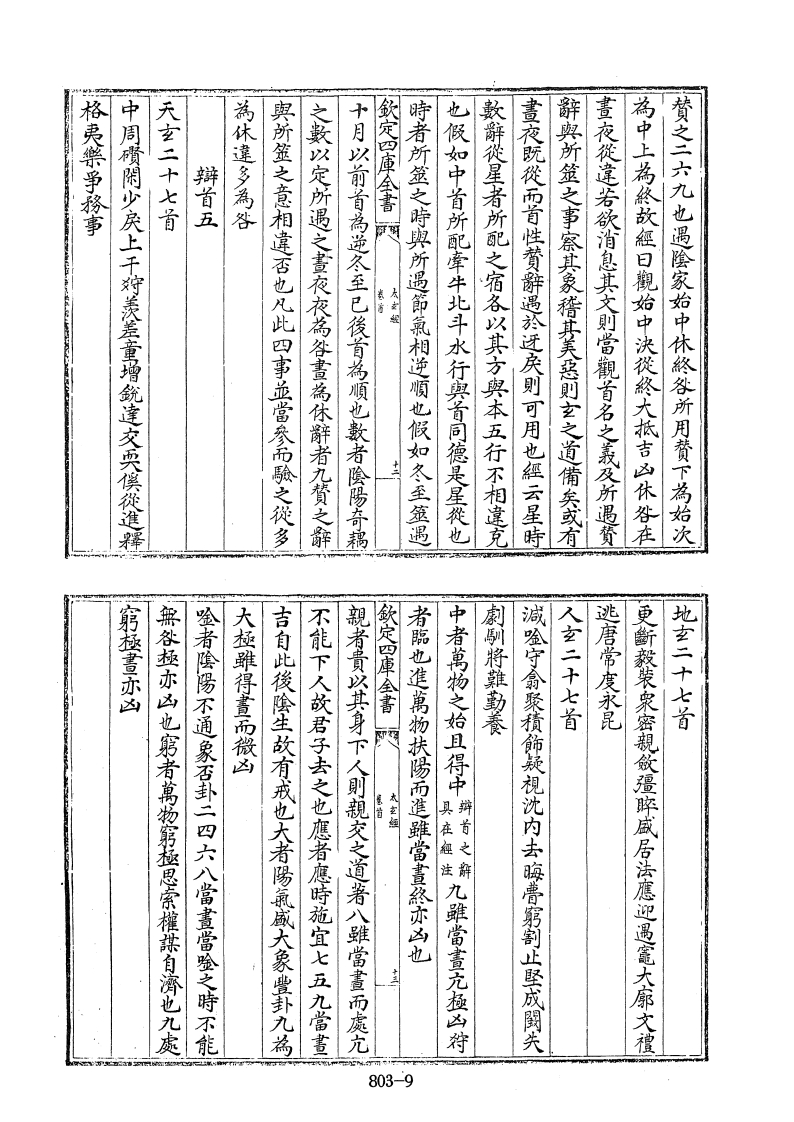 贊之二六九也遇陰家始中休終咎所用贊下為始次
為中上為終故經曰觀始中決從終大抵吉凶休咎在
晝夜從違若欲消息其文則當觀首名之義及所遇贊
辭與所筮之事察其象稽其美惡則玄之道備矣或有
晝夜既從而首性贊辭遇於迕戾則可用也經云星時
數辭從星者所配之宿各以其方與本五行不相違克
也假如中首所配牽牛北斗水行與首同德是星從也
時者所筮之時與所遇節氣相逆順也假如冬至筮遇
欽定四庫全書
太玄經
卷首
十二
十月以前首為逆冬至已後首為順也數者陰陽奇耦
之數以定所遇之晝夜夜為咎晝為休辭者九贊之辭
與所筮之意相違否也凡此四事並當參而驗之從多
為休違多為咎
辯首五
天玄二十七首
中周礥閑少戾上干狩羨差童增銳達交耎傒從進釋
格夷樂爭務事
地玄二十七首
更斷毅裝衆密親斂彊睟盛居法應迎遇竈大廓文禮
逃唐常度永昆
人玄二十七首
減唫守翕聚積飾疑視沈内去晦瞢窮割止堅成闕失
劇馴將難勤養
中者萬物之始且得中辯首之辭具在經注九雖當晝亢極凶狩
者臨也進萬物扶陽而進雖當晝終亦凶也
欽定四庫全書
太玄經
卷首
十三
親者貴以其身下人則親交之道著八雖當晝而處亢
不能下人故君子去之也應者應時施宜七五九當晝
吉自此後陰生故有戒也大者陽氣盛大象豐卦九為
大極雖得晝而微凶
唫者陰陽不通象否卦二四六八當晝當唫之時不能
無咎極亦凶也窮者萬物窮極思索權謀自濟也九處
窮極晝亦凶
803-9